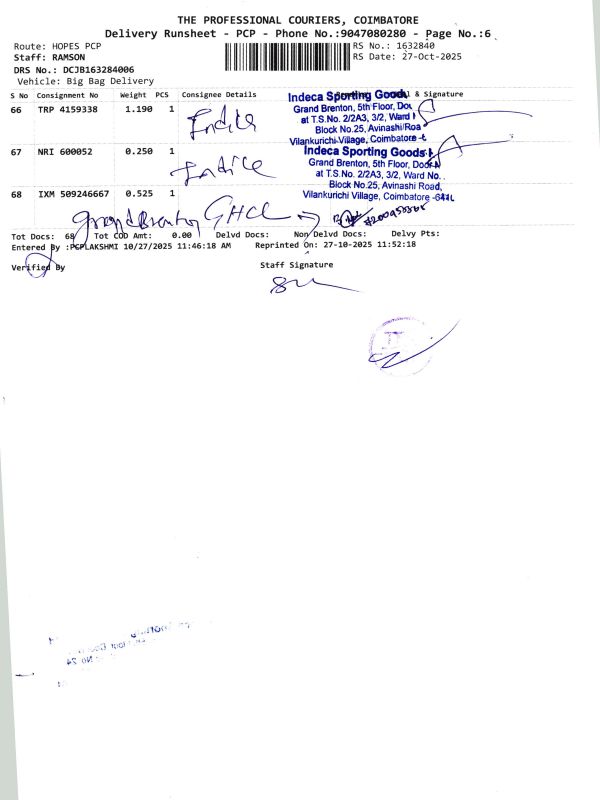 THE PROFESSIONAL COURIERS, COIMBATORE
Delivery Runsheet - PCP - Phone No.:9047080280 - Page No.:6
Route: HOPES PCP
RS No.: 1632840
Staff: RAMSON
RS Date: 27-Oct-2025
DRS No.: DCJB163284006
Vehicle: Big Bag Delivery
S No Consignment No Weight PCS Consignee Details & Signature
66 TRP 4159338 1.190 1
Indeca Sporting Goods
Grand Brenton, 5th Floor,
at T.S.No. 2/2A3, 3/2, Ward
Block No.25, Avinashi Roa
Vilankurichi Village, Coimbatore
67 NRI 600052 0.250 1
Indeca Sporting Goods
Grand Brenton, 5th Floor, Door
at T.S.No. 2/2A3, 3/2, Ward No.
Block No.25, Avinashi Road,
Vilankurichi Village, Coimbatore
68 IXM 509246667 0.525 1
Grand Brenton GHCL
Tot Docs: 68 Tot COD Amt: 0.00 Delvd Docs: Non Delvd Docs: Delvy Pts:
Entered By :PCPLAKSHMI 10/27/2025 11:46:18 AM Reprinted On: 27-10-2025 11:52:18
Verified By
Staff Signature